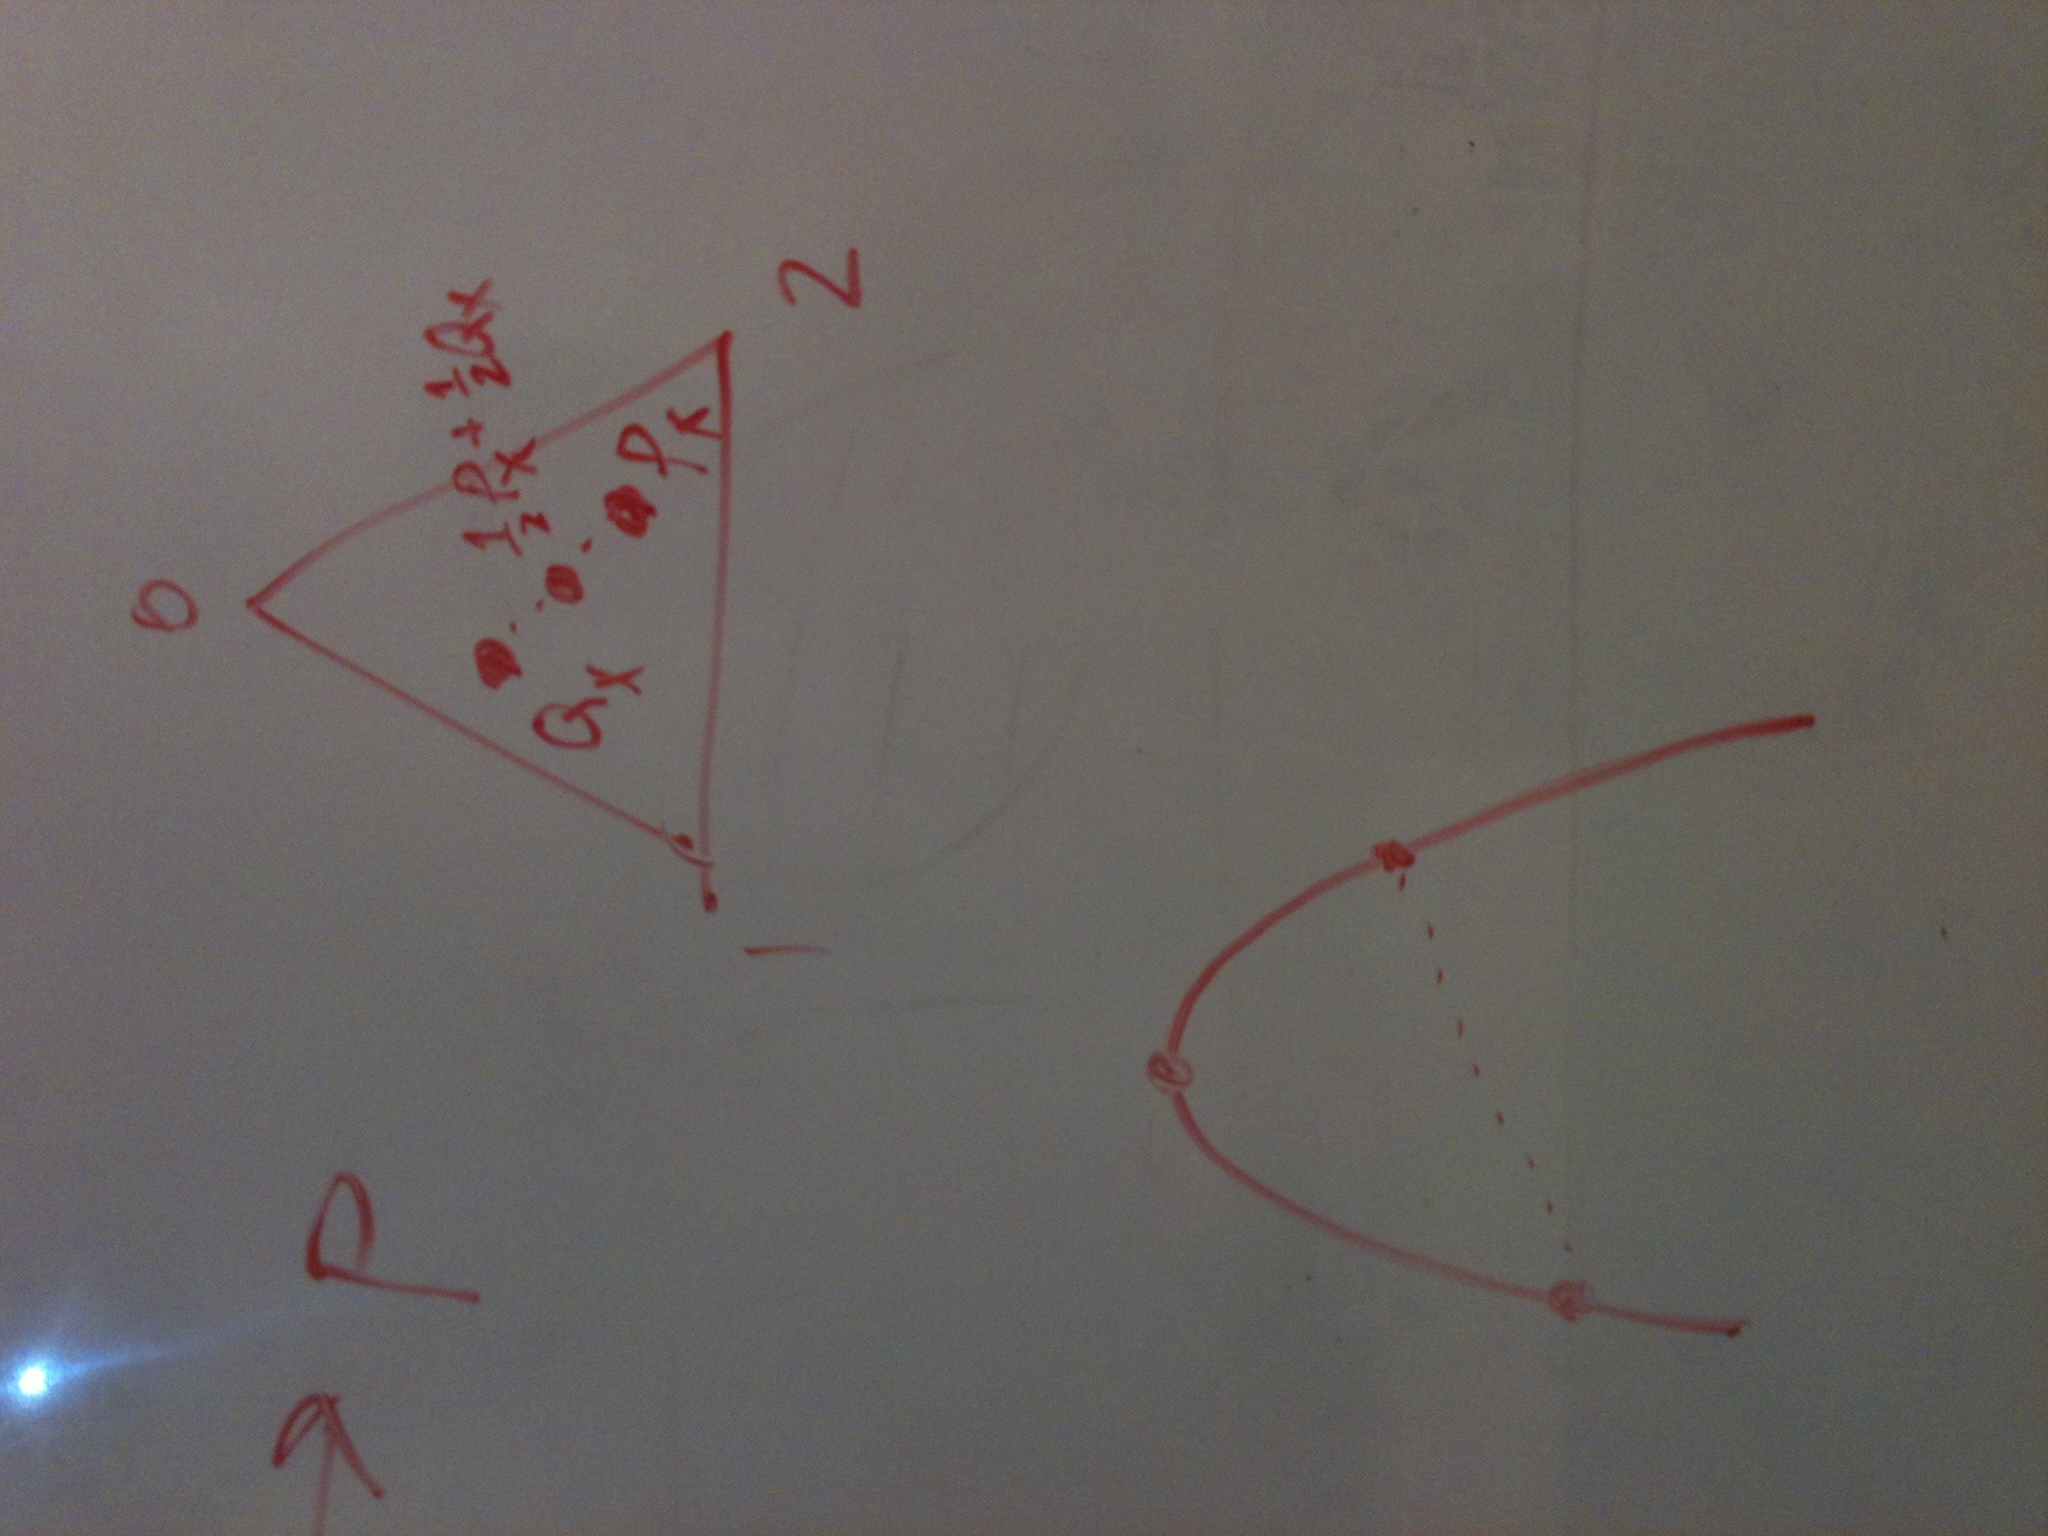 0
→ P
½ P_X + ½ Q_X
Q_X
P_X
1
2